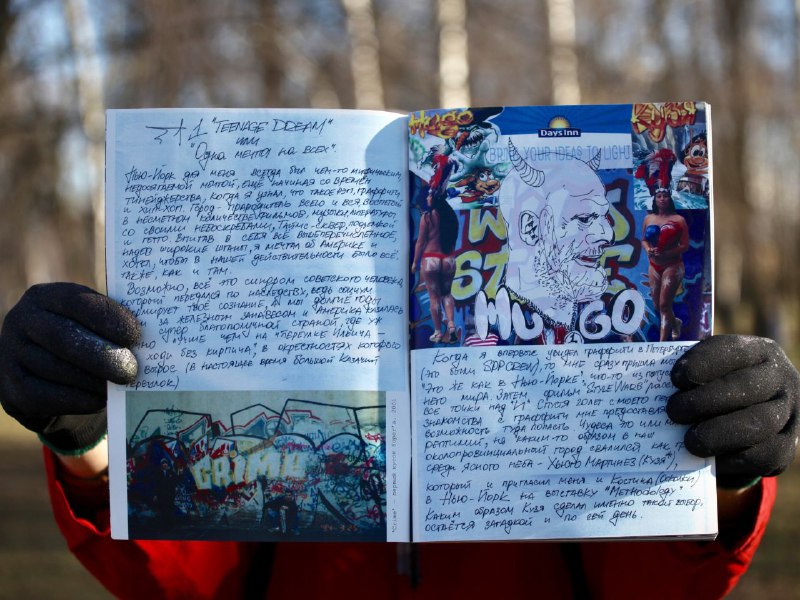 "TEENAGE DREAM"
или
"Одна мечта на всех".
Нью-Йорк для меня всегда был чем-то мифическим,
недосягаемой мечтой, ещё начиная со времен
тинейджерства, когда я узнал, что такое рэп, граффити
и хип-хоп. Город-прародитель всего и вся, воспетый
в несметном количестве фильмов, музыки, литературы,
со своими небоскребами, Таймс-сквер, подземкой
и гетто. Впитав в себя всё вышеперечисленное,
надев широкие штаны, я мечтал об Америке и
хотел, чтобы в нашей действительности было всё
также, как и там.
Возможно, всё это синдром советского человека,
который передался по наследству, ведь социум
формирует твоё сознание, а мы долгие годы
за железным занавесом и Америка казалась
супер благополучной страной, где уж
но лучше чем на "переулке Ильича -
ходи без кирпича", в окрестностях которого
вырос (в настоящее время Большой Казачий
переулок)
"Grimm" - первый кусок Корюта, 2001
Mugo
Days Inn
BRING YOUR IDEAS TO LIGHT
W
STYLE
MUGO
Когда я впервые увидел граффити в Петербурге
(это были SPP CREW), то мне сразу пришла мысль
"Это же как в Нью-Йорке", что-то из потустороннего
него мира. Затем, фильм "Style Wars" расставил
все точки над "И". Спустя 20 лет с моего первого
знакомства с граффити мне предоставилась
возможность туда попасть. Чудеса это или
но каким-то образом в наш
околопровинциальный город свалился как гром
среди ясного неба - Хьюго Мартинез (Кузя),
который и пригласил меня и Костика
в Нью-Йорк на выставку "Methodology".
Каким образом Кузя сделал именно такой выбор,
остаётся загадкой и по сей день.